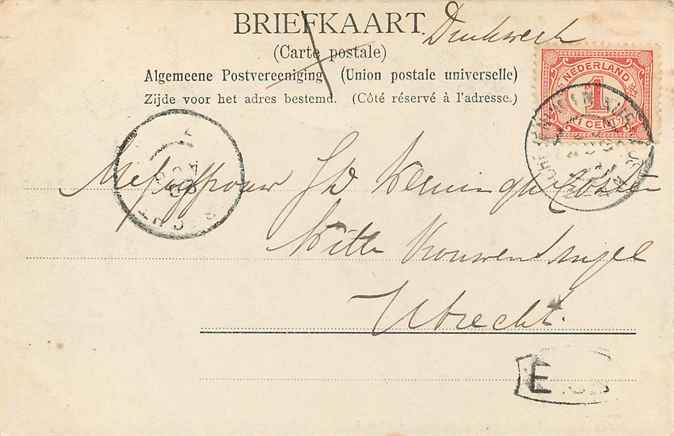 BRIEFKAART Drukwerk
(Carte postale)
Algemeene Postvereeniging (Union postale universelle)
Zijde voor het adres bestemd. (Côté réservé à l'adresse.)
NEDERLAND
1
CENT
Mejuffrouw J D
Witte Vrouwen Singel
Utrecht.
E